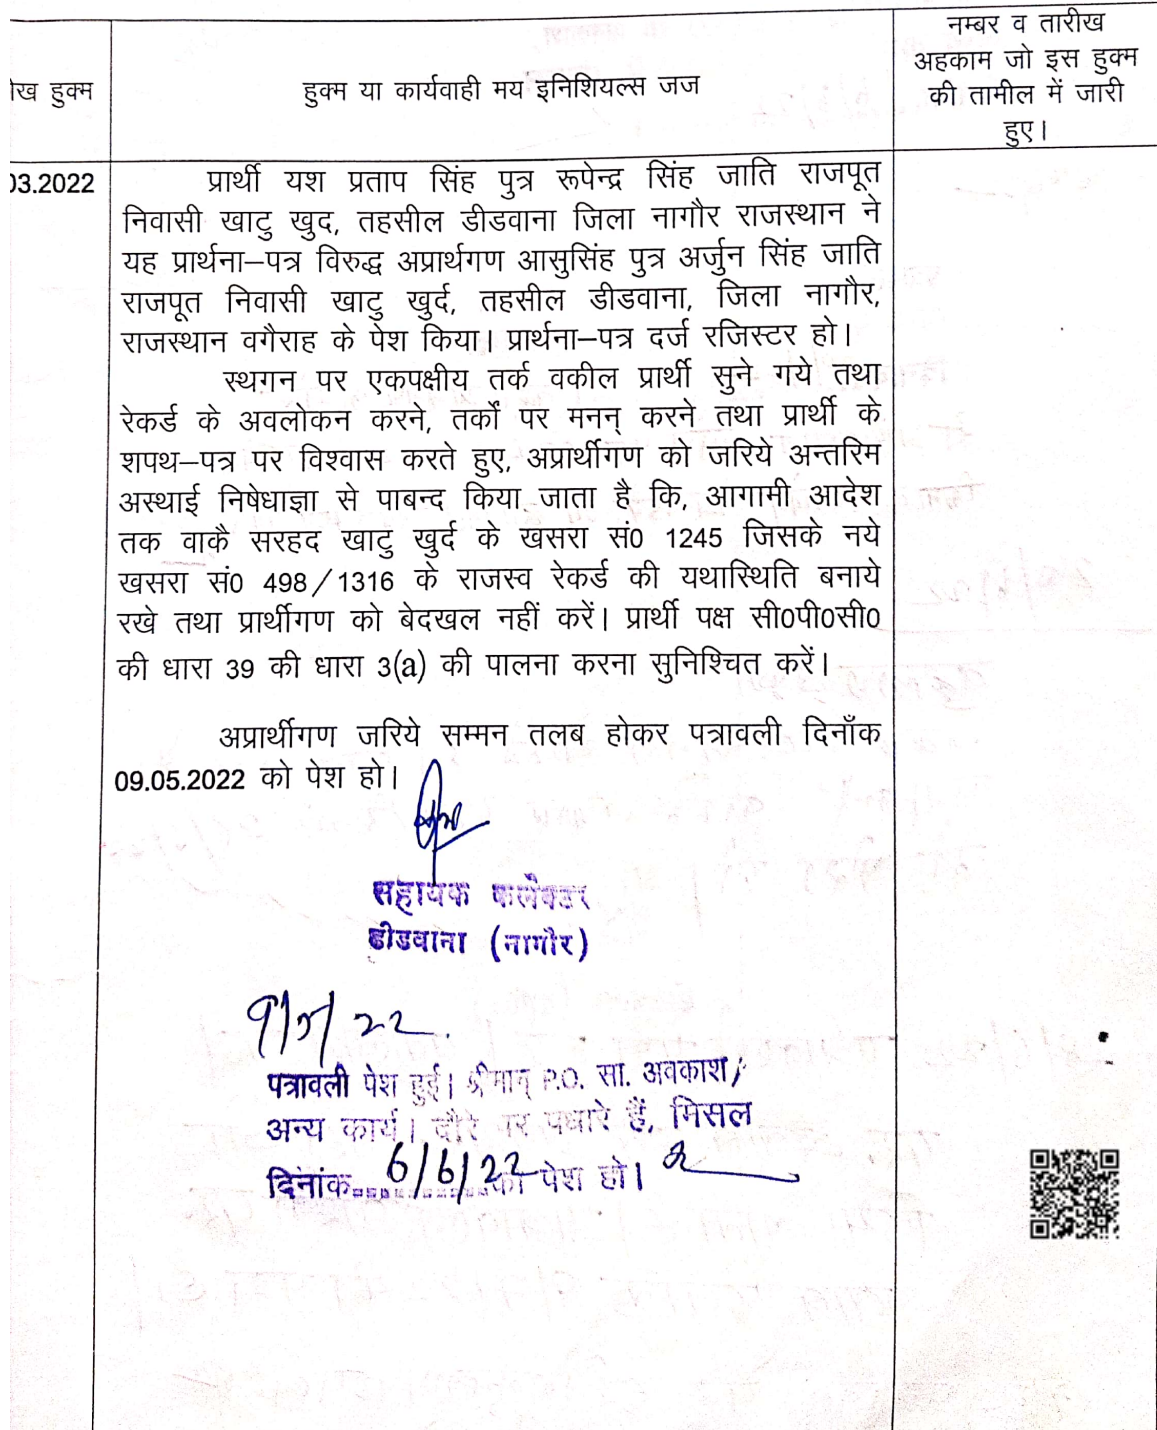 नम्बर व तारीख
अहकाम जो इस हुक्म
की तामील में जारी
हुए।
हुक्म
हुक्म या कार्यवाही मय इनिशियल्स जज
03.2022
प्रार्थी यश प्रताप सिंह पुत्र रूपेन्द्र सिंह जाति राजपूत
निवासी खाटु खुद, तहसील डीडवाना जिला नागौर राजस्थान ने
यह प्रार्थना–पत्र विरुद्ध अप्रार्थगण आसुसिंह पुत्र अर्जुन सिंह जाति
राजपूत निवासी खाटु खुर्द, तहसील डीडवाना, जिला नागौर,
राजस्थान वगैराह के पेश किया। प्रार्थना–पत्र दर्ज रजिस्टर हो।
स्थगन पर एकपक्षीय तर्क वकील प्रार्थी सुने गये तथा
रेकर्ड के अवलोकन करने, तर्कों पर मनन् करने तथा प्रार्थी के
शपथ–पत्र पर विश्वास करते हुए, अप्रार्थीगण को जरिये अन्तरिम
अस्थाई निषेधाज्ञा से पाबन्द किया जाता है कि, आगामी आदेश
तक वाकै सरहद खाटु खुर्द के खसरा सं0 1245 जिसके नये
खसरा सं0 498/1316 के राजस्व रेकर्ड की यथास्थिति बनाये
रखे तथा प्रार्थीगण को बेदखल नहीं करें। प्रार्थी पक्ष सी0पी0सी0
की धारा 39 की धारा 3(a) की पालना करना सुनिश्चित करें।
अप्रार्थीगण जरिये सम्मन तलब होकर पत्रावली दिनाँक
09.05.2022 को पेश हो।
सहायक कलेक्टर
डीडवाना (नागौर)
9/5/22.
पत्रावली पेश हुई। श्रीमान् P.O. सा. अवकाश/
अन्य कार्य। दौरे पर पधारे हैं, मिसल
दिनांक 6/6/22 को पेश हो।